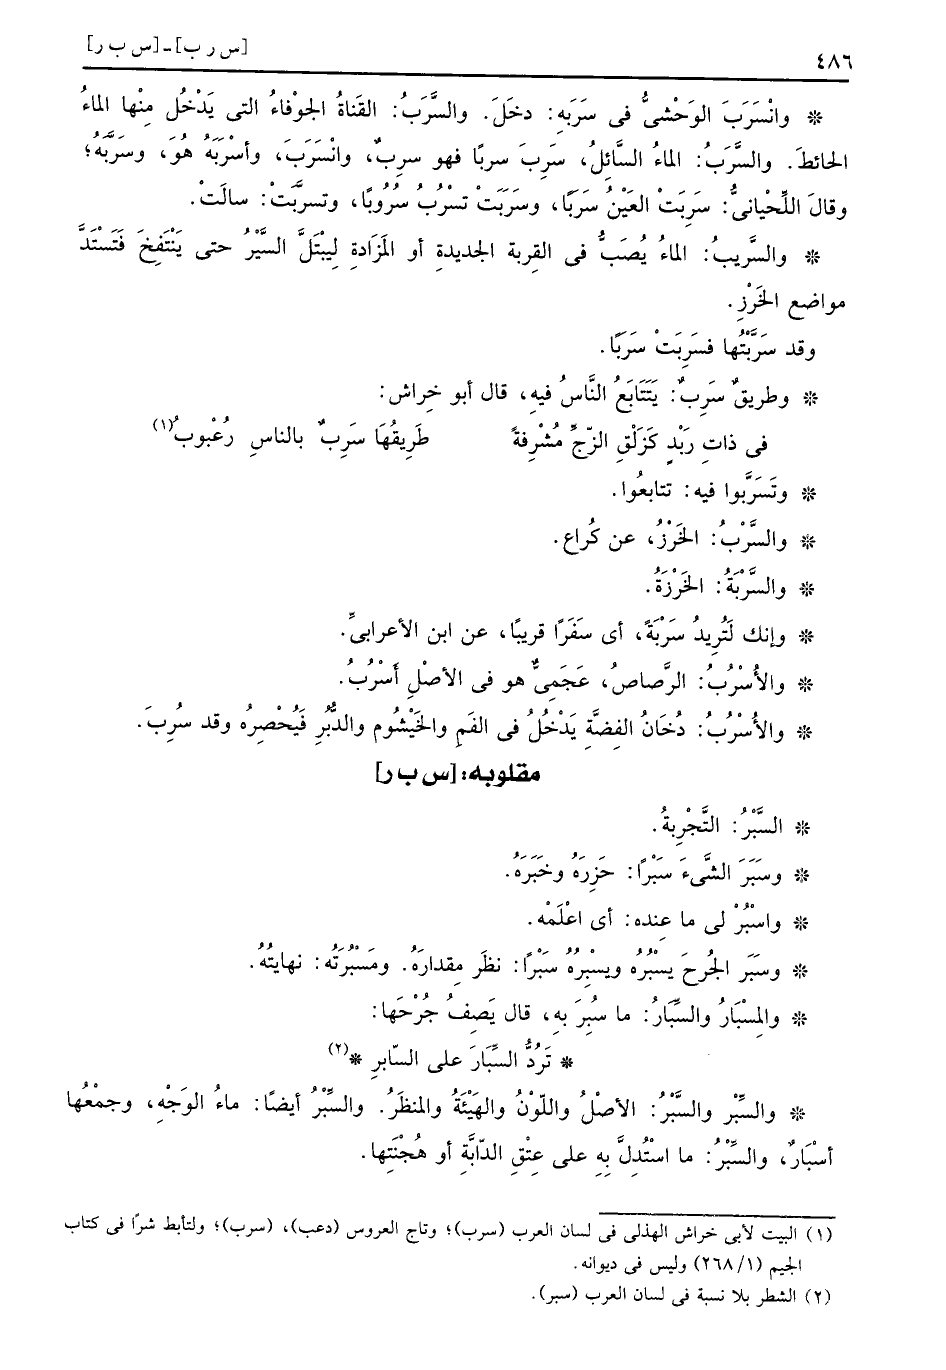 ٤٨٦
[س ر ب] - [س ب ر]
* وانْسَرَبَ الوَحْشىُّ فى سَرَبِه: دخَلَ. والسَّرَبُ: القَناةُ الجوْفاءُ التى يَدْخُل مِنْها الماءُ
الحائطَ. والسَّرَبُ: الماءُ السَّائلُ، سَرِبَ سربًا فهو سرِبٌ، وانْسَرَبَ، وأسْرَبَهُ هوَ، وسَرَّبَهُ؛
وقالَ اللِّحْيانىُّ: سَرِبَتْ العَيْنُ سَرَبًا، وسَرَبَتْ تسْرُبُ سُرُوبًا، وتسرَّبَتْ: سالَتْ.
* والسَّرِيبُ: الماءُ يُصَبُّ فى القِربة الجديدةِ أو المَزَادةِ لِيبْتَلَّ السَّيْرُ حتى يَنْتَفِخَ فَتَسْتَدَّ
مواضع الخَرْزِ.
وقد سَرَّبْتُها فسَرِبَتْ سَرَبًا.
* وطريقٌ سَرِبٌ: يَتَتَابَعُ النَّاسُ فيهِ، قال أبو خِراش:
فى ذاتِ رَيْدٍ كَزَلْقِ الزّجِّ مُشْرِفةً طَرِيقُهَا سَرِبٌ بالناسِ رُعْبوبُ(١)
* وتَسَرَّبوا فيه: تتابعُوا.
* والسَّرْبُ: الخَرْزُ، عن كُراع.
* والسَّرْبَةُ: الخَرْزَةُ.
* وإنك لَتُرِيدُ سَرْبَةً، أى سَفَرًا قريبًا، عن ابن الأعرابىِّ.
* والأُسْرُبُ: الرَّصاصُ، عَجَمِىٌّ هو فى الأصْلِ أَسْرُبُ.
* والأُسْرُبُ: دُخَان الفِضَّة يَدْخُلُ فى الفَمِ والخَيْشُوم والدُّبُرِ فَيُحْصِرُه وقد سُرِبَ.
مقلوبه: [س ب ر]
* السَّبْرُ: التَّجْرِبةُ.
* وسَبَرَ الشَّىءَ سَبْرًا: حَزرَهُ وخَبَرَهُ.
* واسْبُرْ لى ما عِنده: أى اعْلَمْه.
* وسَبَر الجُرحَ يَسْبُرُه ويسْبِرُه سَبْرًا: نظَر مِقدارَهُ. ومَسْبُرَتُه: نهايتُهُ.
* والمِسْبَارُ والسِّبَارُ: ما سُبِرَ بهِ، قال يَصِفُ جُرْحَها:
* تَرُدُّ السِّبَارَ على السّابرِ *(٢)
* والسِّبْر والسَّبْرُ: الأصْلُ واللّوْنُ والهَيْئَةُ والمنظَرُ. والسِّبْرُ أيضًا: ماءُ الوَجْهِ، وجمْعُها
أسْبَارٌ، والسِّبْرُ: ما اسْتُدِلَّ بِهِ على عِتْقِ الدّابَّةِ أو هُجْنَتِها.
(١) البيت لأبى خراش الهذلى فى لسان العرب (سرب)؛ وتاج العروس (دعب)، (سرب)؛ ولتأبط شرًا فى كتاب
الجيم (١/ ٢٦٨) وليس فى ديوانه.
(٢) الشطر بلا نسبة فى لسان العرب (سبر).